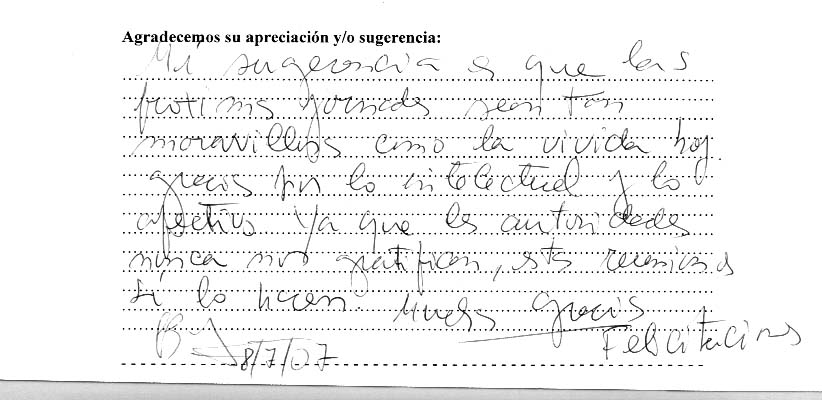 Agradecemos su apreciación y/o sugerencia:
Mi sugerencia es que las
proximas jornadas sean tan
maravillosas como la vivida hoy.
gracias por lo intelectual y lo
afectivo ya que las autoridades
nunca nos gratifican, estas reuniones
sí lo hacen. Muchas gracias
Felicitaciones
8/7/07